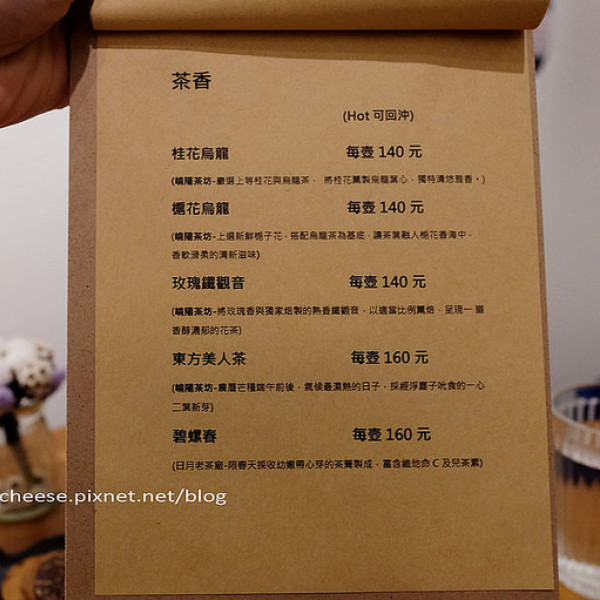 茶香
(Hot 可回沖)
桂花烏龍 每壺 140 元
(嶢陽茶坊-嚴選上等桂花與烏龍茶， 將桂花薰製烏龍葉心，獨特清悠雅香。)
梔花烏龍 每壺 140 元
(嶢陽茶坊-上選新鮮梔子花，搭配烏龍茶為基底，讓茶葉融入梔花香海中，
香軟滑柔的清新滋味)
玫瑰鐵觀音 每壺 140 元
(嶢陽茶坊-將玫瑰香與獨家焙製的熟香鐵觀音，以適當比例薰焙，呈現一道
香醇濃郁的花茶)
東方美人茶 每壺 160 元
(嶢陽茶坊-農曆芒種端午前後，氣候最濕熱的日子，採經浮塵子吮食的一心
二葉新芽)
碧螺春 每壺 160 元
(日月老茶廠-限春天採收幼嫩帶心芽的茶菁製成，富含維他命 C 及兒茶素)
cheese.pixnet.net/blog